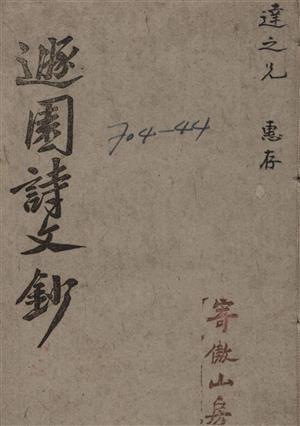 達之兄 惠存
寄傲山房
704-44
遯園詩文鈔